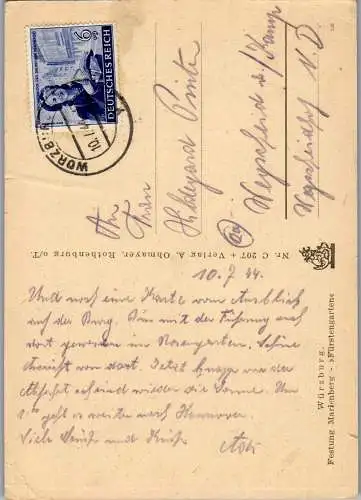 6
DEUTSCHES REICH
WÜRZBURG
10.7.44
An
Frau
Hildegard
Wegscheid a/ Kamp
Wegscheidhof N.D.
10.7.44
Und noch eine Karte vom Ausblick
auf der Burg. Bin mit der Führung auch
dort gewesen im Rosengarten. Schöne
Aussicht von dort. Jetzt knapp vor der
Abfahrt scheint wieder die Sonne. Um
geht es weiter nach Hannover.
Viele Grüße und Küsse
Nr. C 207 + Verlag A. Ohmayer, Rothenburg o/T.
Würzburg.
Festung Marienberg - »Fürstengarten«